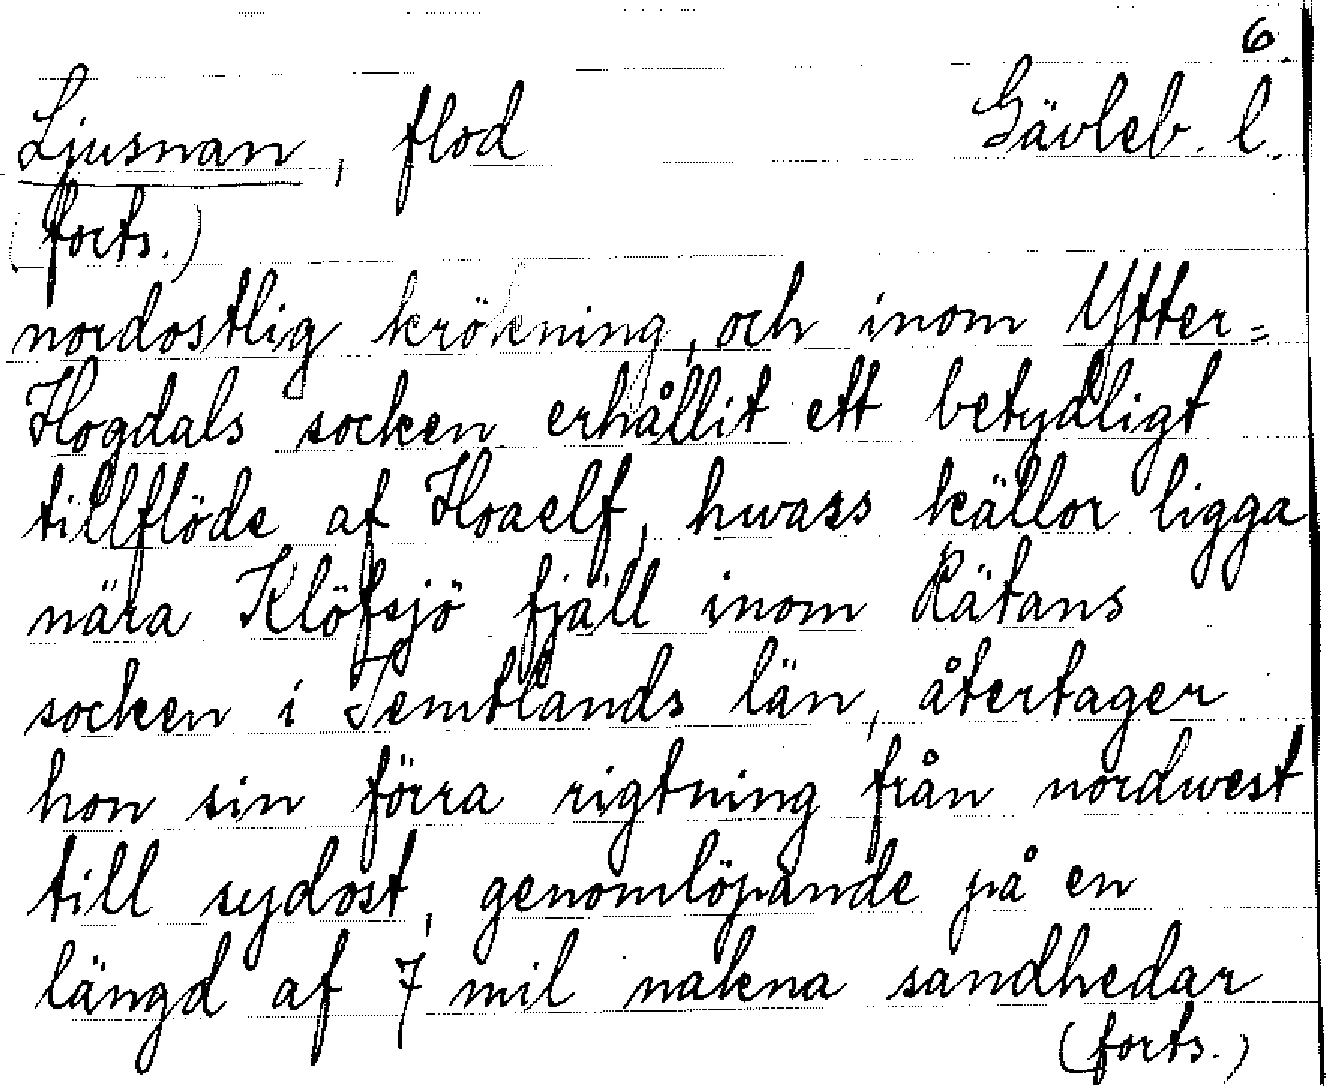 6
Ljusnan, flod Gävleb. l.
(forts.)
nordostlig krökning, och inom Ytter=
Hogdals socken erhållit ett betydligt
tillflöde af Hoaelf, hwass källor ligga
nära Klöfsjö fjäll inom Rätans
socken i Jemtlands län, återtager
hon sin förra rigtning från nordwest
till sydost, genomlöpande på en
längd af 7 mil nakna sandhedar
(forts.)